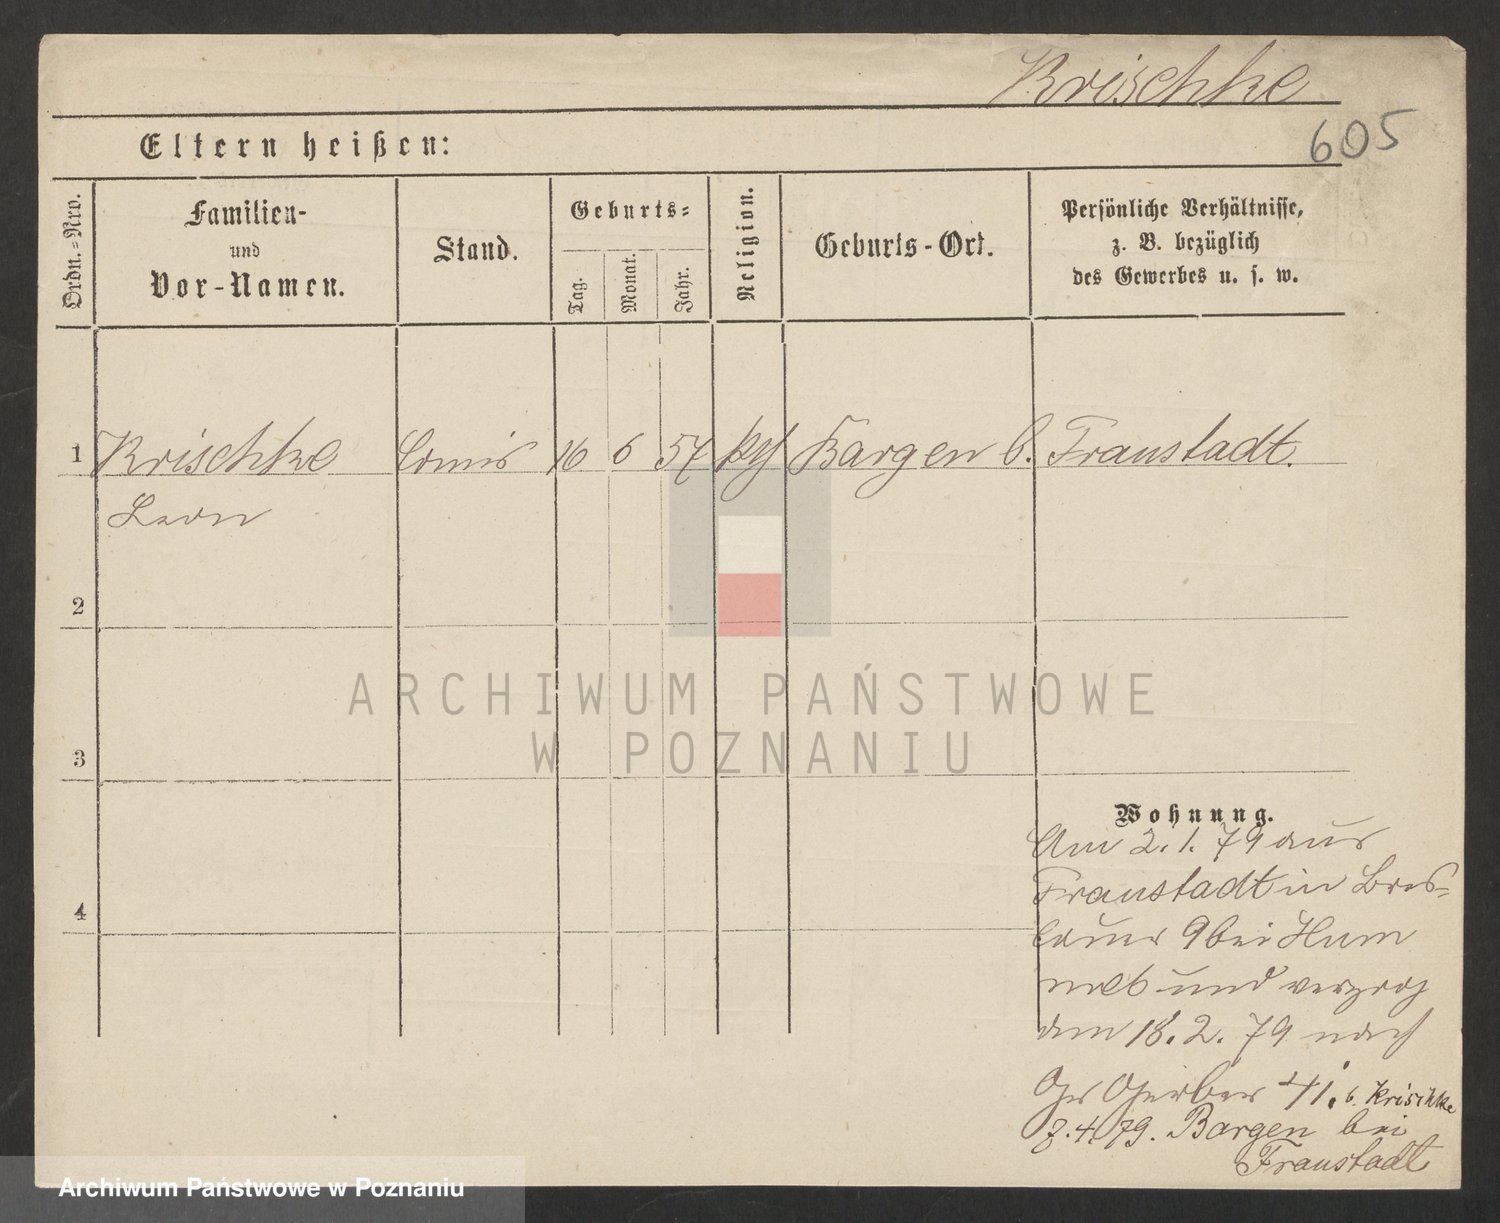 Krischke
605
Eltern heißen:
Ordn.=Nro.
Familien-
und
Vor-Namen.
Stand.
Geburts=
Tag.
Monat.
Jahr.
Religion.
Geburts-Ort.
Persönliche Verhältnisse,
z. B. bezüglich
des Gewerbes u. s. w.
1 Krischke Comis 16 6 57 Bargen b. Fraustadt.
Leon
2
ARCHIWUM PAŃSTWOWE
W POZNANIU
3
Wohnung.
Am 2. 1. 79 aus
Fraustadt in Bres=
lauer 9 bei Hum
mel und verzog
4
am 18. 2. 79 nach
Gr Gerber 41. b. Krischke
z. 4. 79. Bargen bei
Fraustadt
Archiwum Państwowe w Poznaniu